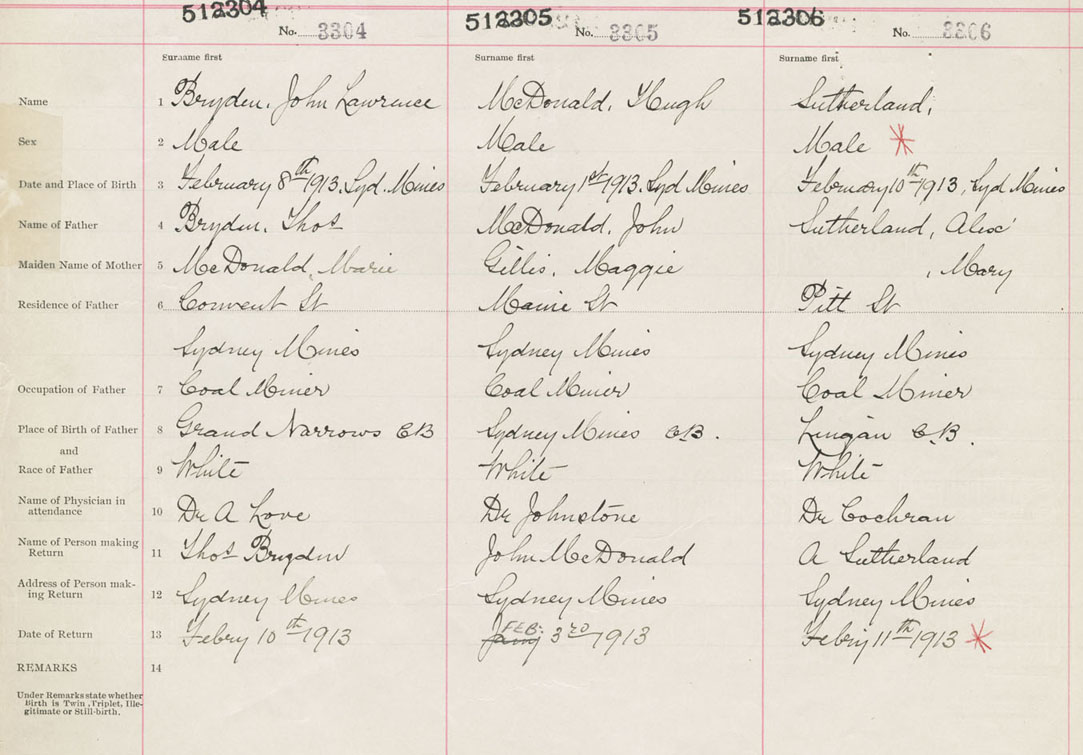 512304 512305 512306
No. 3304 No. 3305 No. 3306
Surname first Surname first Surname first
Name 1 Bryden, John Lawrence McDonald, Hugh Sutherland,
Sex 2 Male Male Male
Date and Place of Birth 3 February 8th 1913. Syd. Mines February 1st 1913. Syd Mines February 10th 1913, Syd Mines
Name of Father 4 Bryden, Thos McDonald, John Sutherland, Alex
Maiden Name of Mother 5 McDonald, Marie Gillis, Maggie , Mary
Residence of Father 6 Convent St Maine St Pitt St
Sydney Mines Sydney Mines Sydney Mines
Occupation of Father 7 Coal Miner Coal Miner Coal Miner
Place of Birth of Father 8 Grand Narrows CB Sydney Mines CB. Lingan C.B.
and
Race of Father 9 White White White
Name of Physician in
attendance 10 Dr A Love Dr Johnstone Dr Cochran
Name of Person making
Return 11 Thos Bryden John McDonald A Sutherland
Address of Person mak-
ing Return 12 Sydney Mines Sydney Mines Sydney Mines
Date of Return 13 Febry 10th 1913 FEB. 3RD 1913 Febry 11th 1913
REMARKS 14
Under Remarks state whether
Birth is Twin, Triplet, Ille-
gitimate or Still-birth.